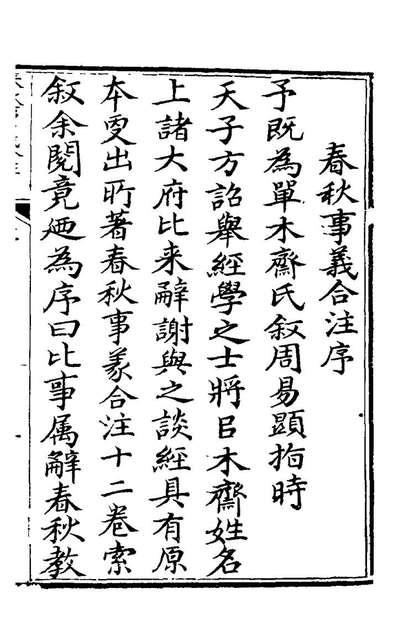 春秋事義合注序
予既為單木齋氏叙周易顯指時
天子方詔舉經學之士將㠯木齋姓名
上諸大府比来辭謝與之談經具有原
夲更出所著春秋事義合注十二卷索
叙余閱竟廼為序曰比事属辭春秋教